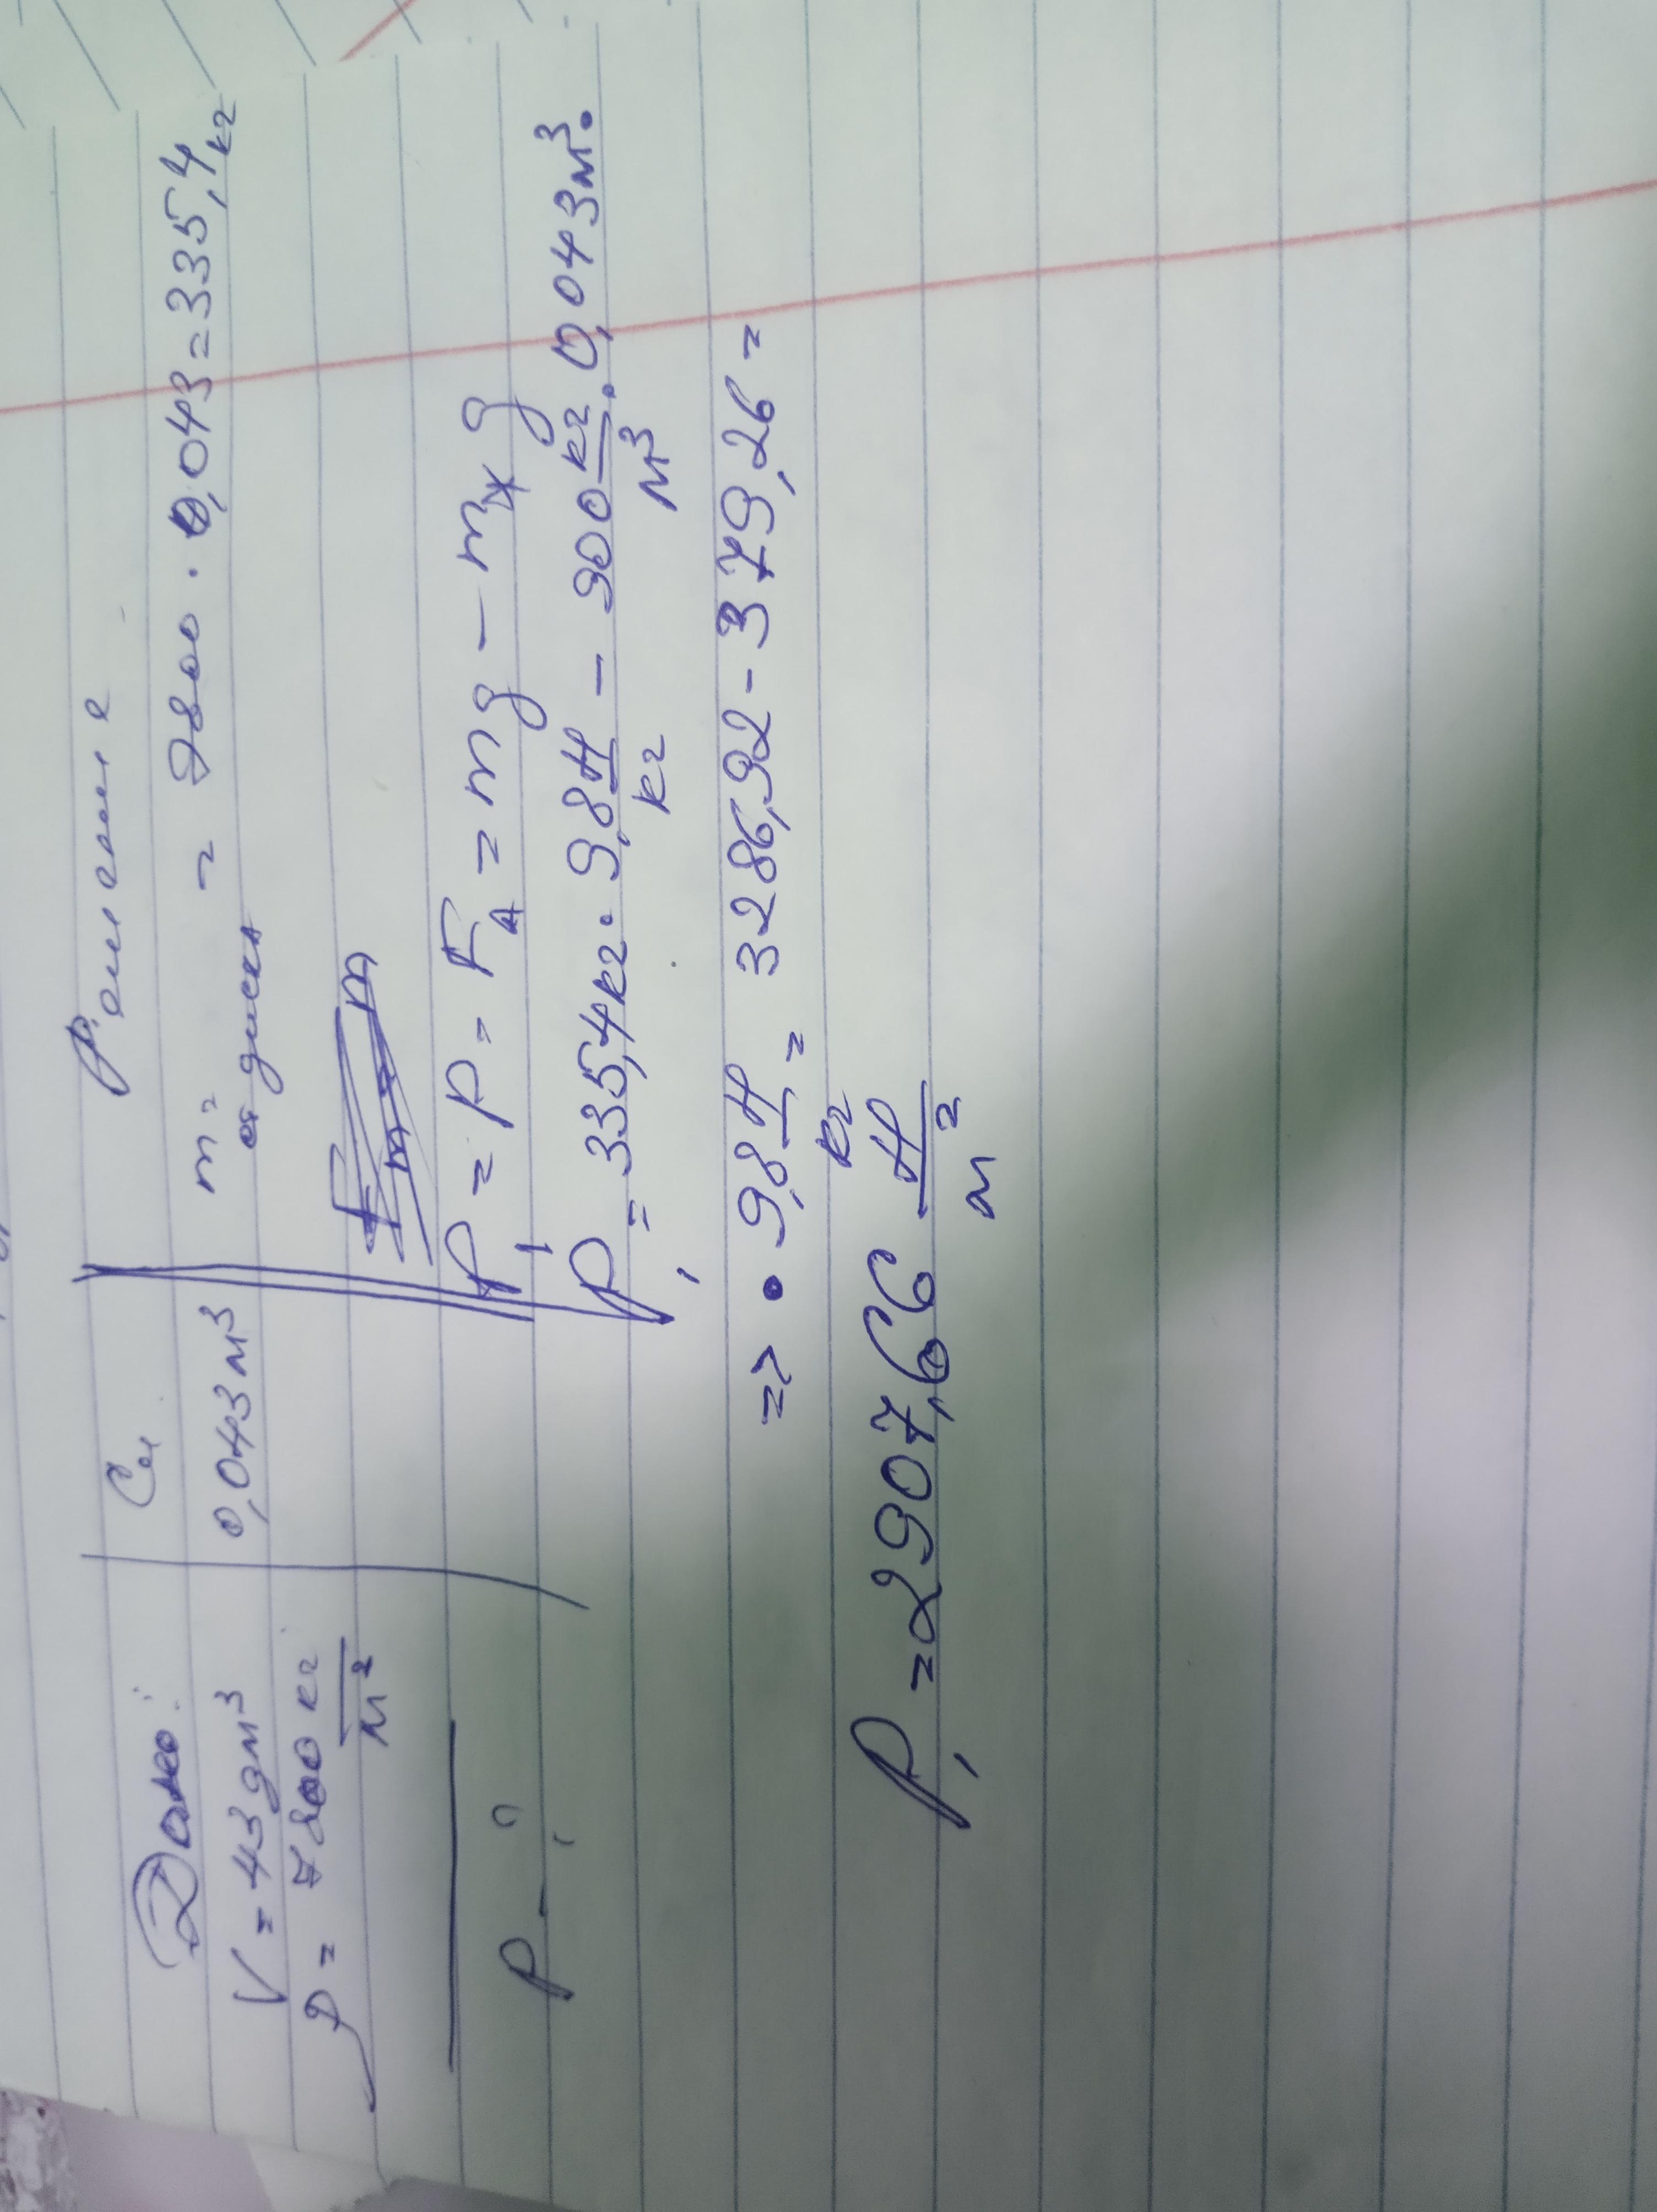 Дано:
V = 43 дм³
ρ = 7800 кг/м²
P - ?
Си
0,043 м³
Решение
m = = 7800 · 0,043 = 335,4 кг
P₁ = P = P - F_A = mg - m_ж g
P₁ = 335,4 кг · 9,8 Н/кг - 900 кг/м³ · 0,043 м³ ·
=> · 9,8 Н/кг = 3286,92 - 379,26 =
P₁ = 2907,66 Н/м²